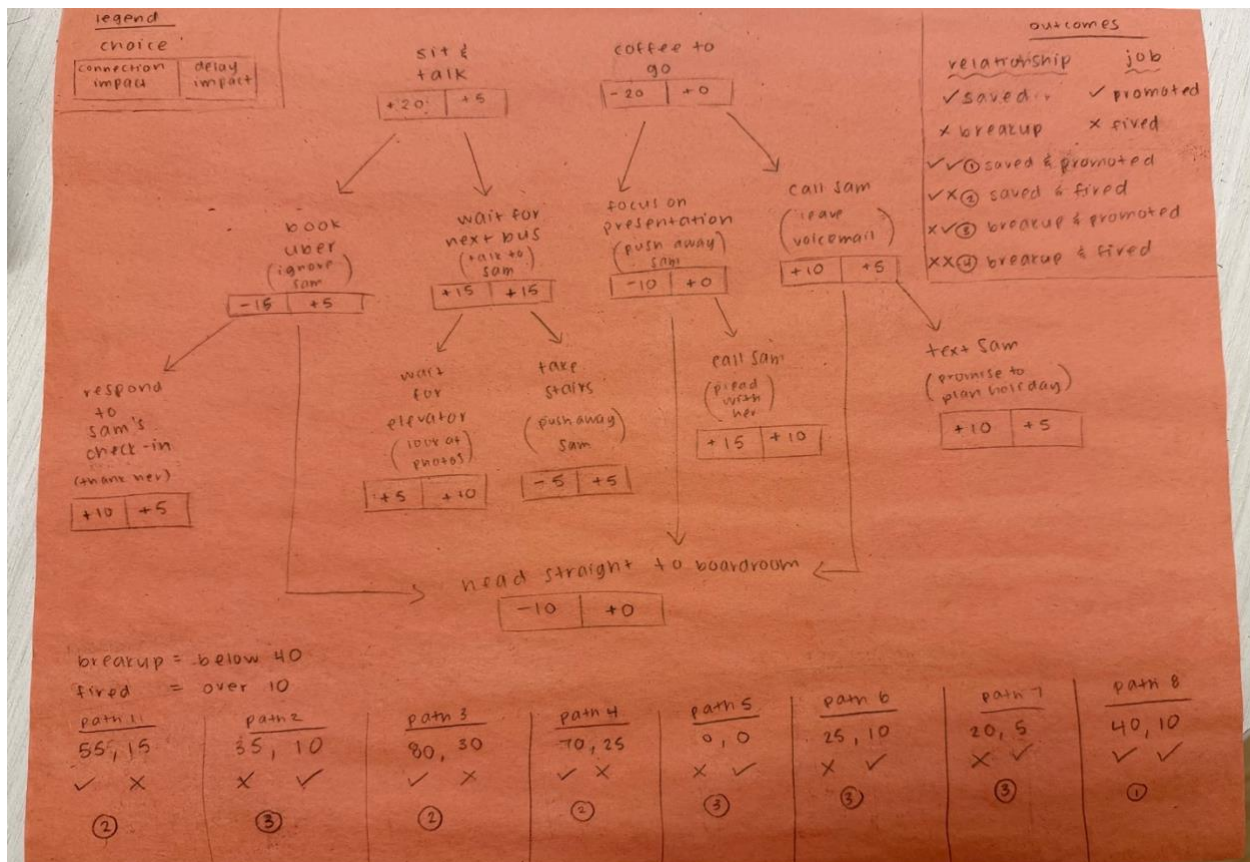 legend
choice
connection impact | delay impact
sit &
talk
+20 | +5
coffee to
go
-20 | +0
outcomes
relationship job
✓ saved ✓ promoted
× breakup × fired
✓✓ ① saved & promoted
✓× ② saved & fired
×✓ ③ breakup & promoted
×× ④ breakup & fired
book
uber
(ignore
sam)
-15 | +5
wait for
next bus
(talk to
sam)
+15 | +15
focus on
presentation
(push away
sam)
-10 | +0
call sam
(leave
voicemail)
+10 | +5
respond
to
sam's
check-in
(thank her)
+10 | +5
wait
for
elevator
(look at
photos)
+5 | +10
take
stairs
(push away
sam)
-5 | +5
call sam
(plead
with
her)
+15 | +10
text sam
(promise to
plan holiday)
+10 | +5
head straight to boardroom
-10 | +0
breakup = below 40
fired = over 10
path 1
55, 15
✓ ×
②
path 2
35, 10
× ✓
③
path 3
80, 30
✓ ×
②
path 4
70, 25
✓ ×
②
path 5
0, 0
× ✓
③
path 6
25, 10
× ✓
③
path 7
20, 5
× ✓
③
path 8
40, 10
✓ ✓
①